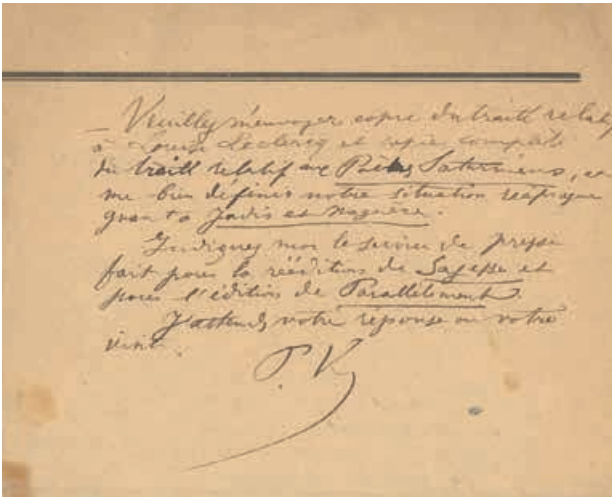 — Veuillez m'envoyer copie du traité relatif
à Louise Leclercq et copie complète
du traité relatif aux Poèmes Saturniens, et
me bien définir notre situation réciproque
quant à Jadis et naguère.
Indiquez moi le service de presse
fait pour la réédition de Sagesse et
pour l'édition de Parallèlement
J'attends votre réponse ou votre
visite.
P.V